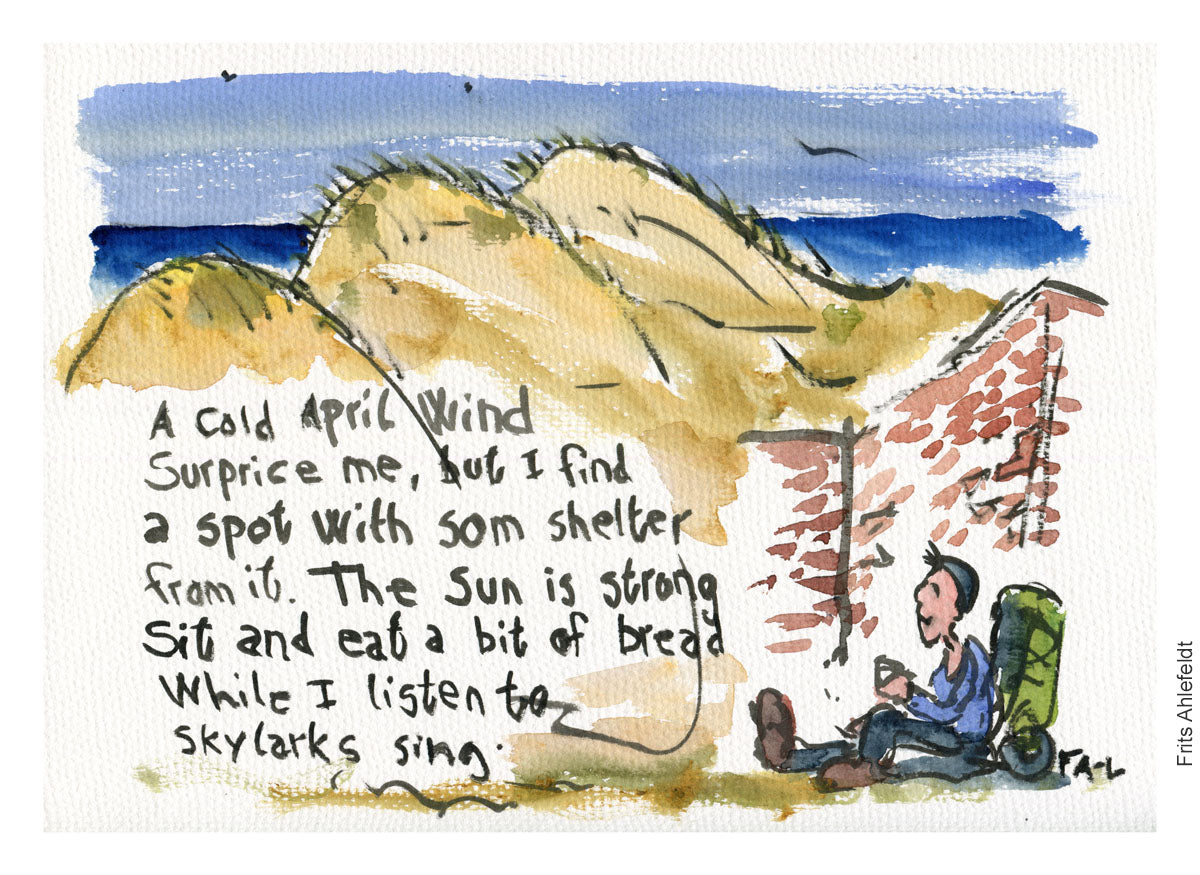 A Cold April Wind
Surprice me, but I find
a spot with som shelter
from it. The Sun is strong
Sit and eat a bit of bread
While I listen to
skylarks sing.
FA-L
Frits Ahlefeldt